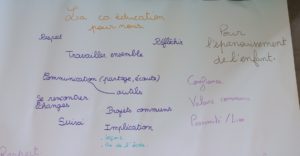 La co éducation
pour nous
Respect
Réfléchir
Pour
l'épanouissement
de l'enfant.
Travailler ensemble
Communication (partage, écoute)
outils
Confiance
Se rencontrer
Echanges
Projets communs
Valeurs communes
Suivi
Implication
Proximité / Lien
Respect